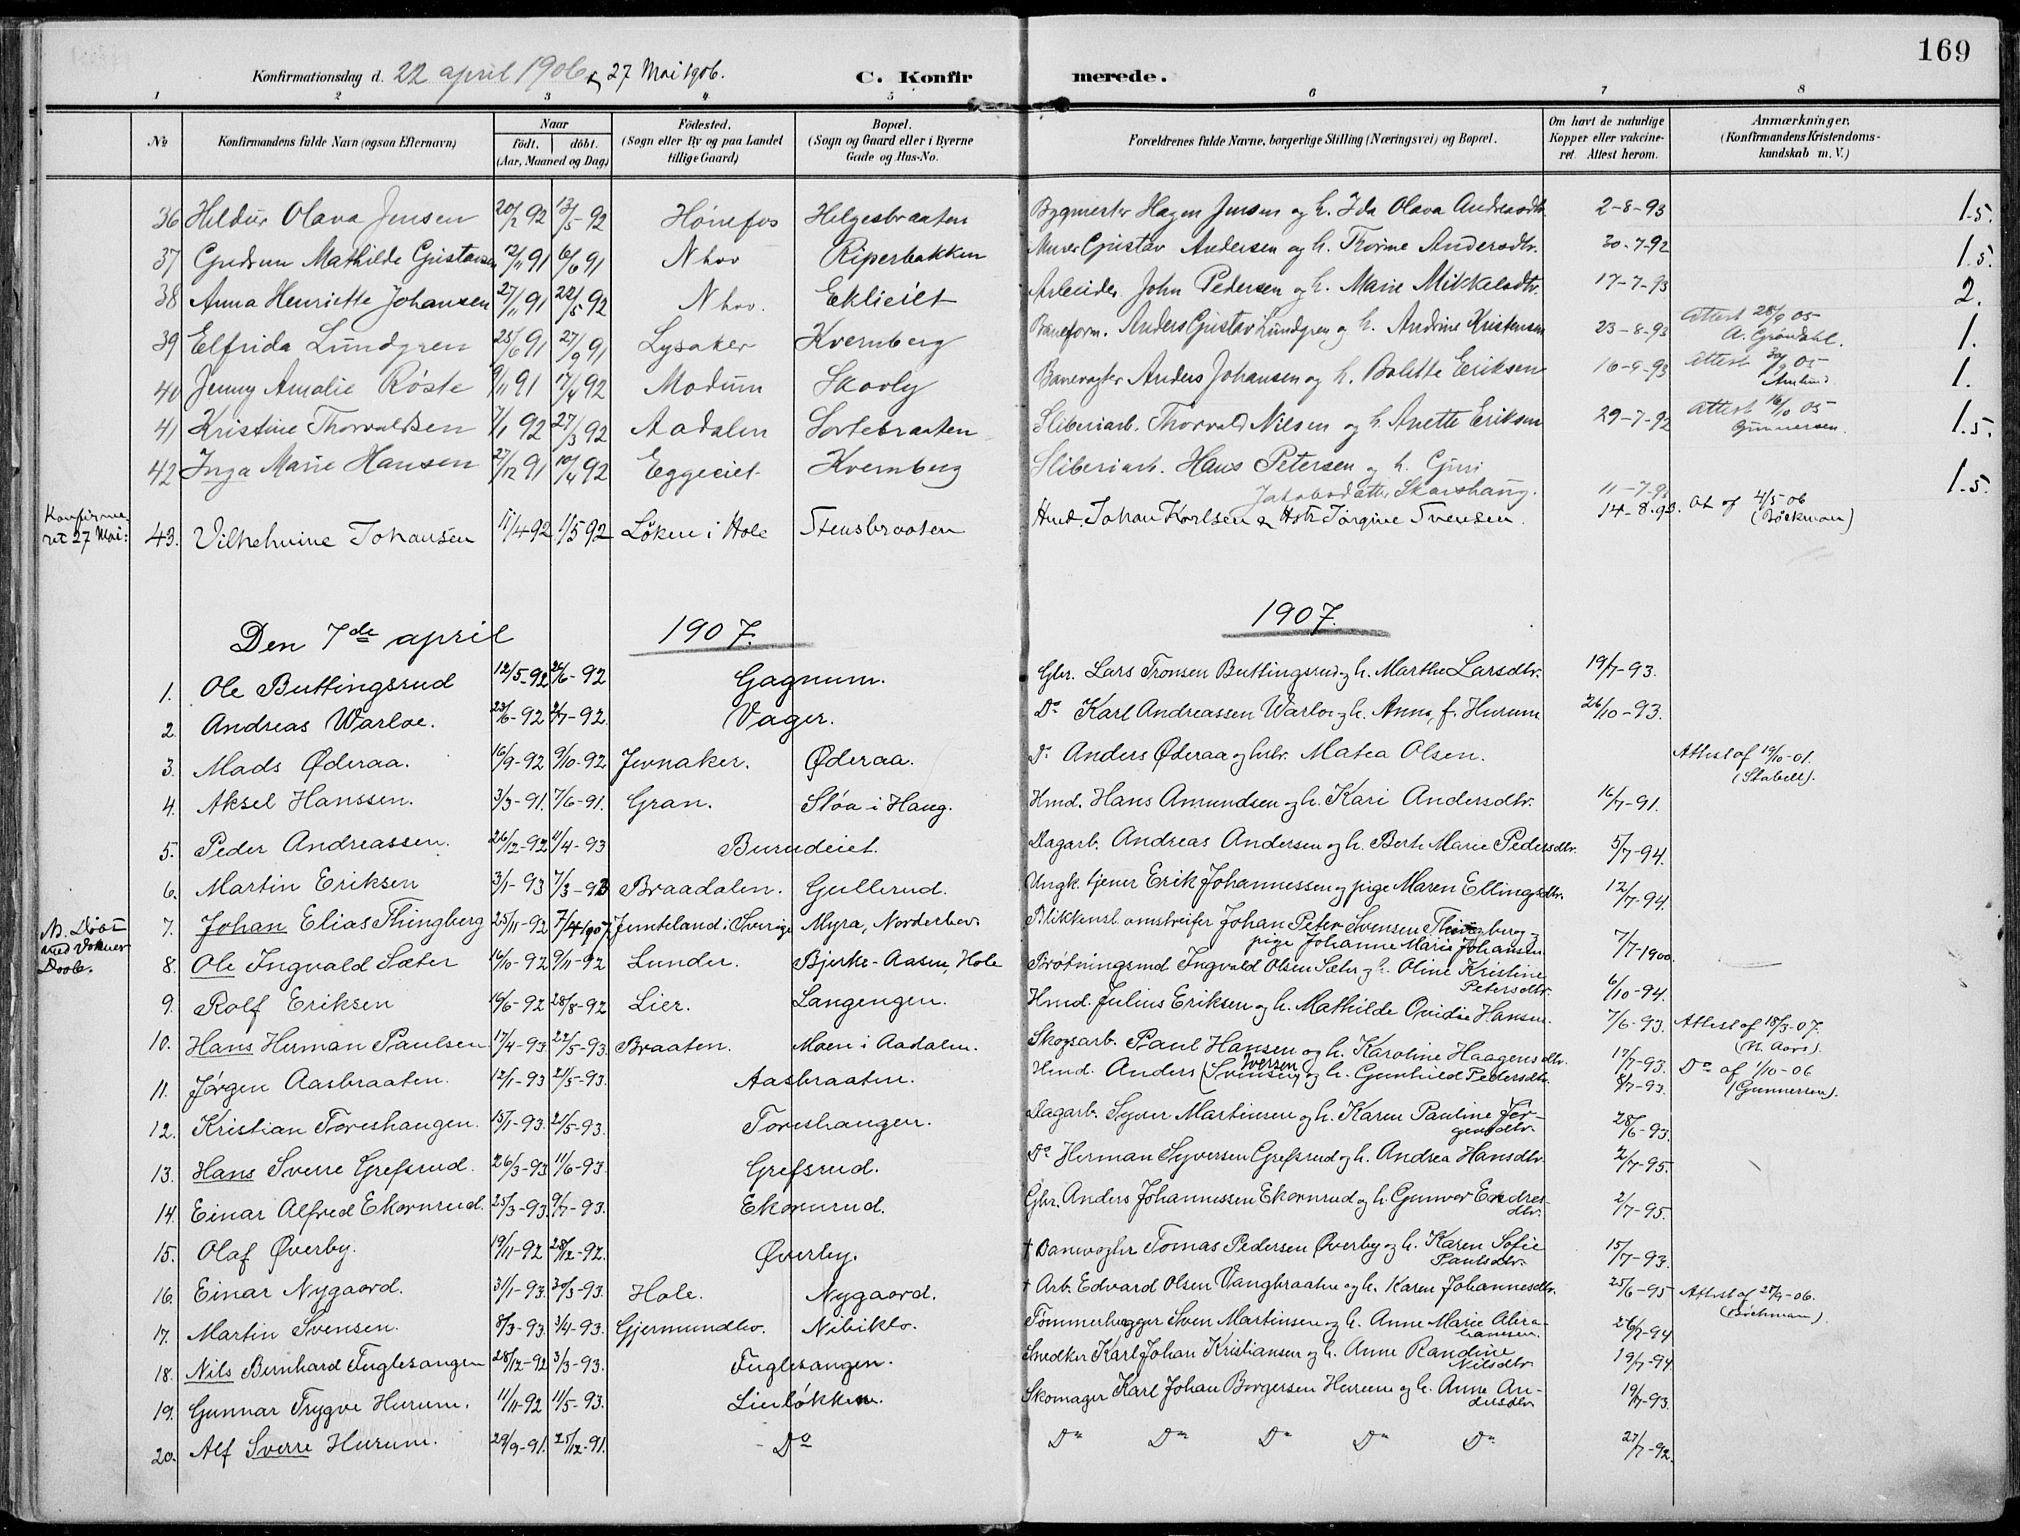 169
Konfirmationsdag d. 22 april 1906 & 27 Mai 1906. C. Konfirmerede.
1 2 3 4 5 6 7 8
No Konfirmandens fulde Navn (ogsaa Efternavn) Naar født. døbt. (Aar, Maaned og Dag) Fødested. (Sogn eller By og paa Landet tillige Gaard) Bopæl. (Sogn og Gaard eller i Byerne Gade og Hus-No. Forældrenes fulde Navne, borgerlige Stilling (Næringsvei) og Bopæl. Om havt de naturlige Kopper eller vakcineret. Attest herom. Anmærkninger. (Konfirmandens Kristendomskundskab m. V.)
36 Hildur Olava Jensen 20/2 92 13/5 92 Hønefos Helgesbraaten Bygmester Hagen Jensen og h. Ida Olava Andreasdtr. 2-8-93 1.5.
37 Gudrun Mathilde Gustavsen 12/11 91 6/6 91 Nhov Riperbakken Murer Gustav Andersen og h. Thorine Andersdtr. 30-7-92 1.5.
38 Anna Henriette Johansen 27/11 91 22/5 92 Nhov. Eklieiet Arbeider John Pedersen og h. Marie Mikkelsdtr. 17-7-93 2.
39 Elfrida Lundgren 25/6 91 27/9 91 Lysaker Kvernberg Baneform. Anders Gustav Lundgren og h. Andrine Kristensen 23-8-93 Attest 28/9 05 A. Grøndahl. 1.
40 Jenny Amalie Røste 9/11 91 17/4 92 Modum Skovly Banevogter Anders Johansen og h. Bolette Eriksen 16-9-93 Attest 30/9 05 1.
41 Kristine Thorvaldsen 7/1 92 27/3 92 Aadalen Sortebraaten Sliberiarb. Thorvald Nilsen og h. Anette Eriksen 29-7-92 Attest 16/10 05 Gunnersen. 1.5.
42 Inga Marie Hansen 27/12 91 10/4 92 Eggeeiet Kvernberg Sliberiarb. Hans Petersen og h. Guri
Jakobsdatter Skarshaug. 11-7-93 1.5.
Konfirmeret 27 Mai: 43. Vilhelmine Johansen 11/4 92 1/5 92 Løken i Hole Stensbraaten Hmd. Johan Karlsen & Hstr Jørgine Svensen. 14-8-93. At. af 4/5-06 (Bøckman)
Den 7de april 1907. 1907.
1. Ole Buttingsrud 12/5-92 26/6-92 Gagnum. Gbr. Lars Tronsen Buttingsrud og h. Marthe Larsdtr. 19/7-93.
2 Andreas Warloe. 23/6-92 2/7-92. Vager. Do Karl Andreassen Warloe og h. Anna, f. Hurum 26/10-93.
3. Mads Øderaa. 16/9-92 9/10-92 Jevnaker. Øderaa. Do Anders Øderaa og hstr. Matea Olsen. Attest af 19/10-01. (Stabell).
4. Aksel Hanssen. 3/3-91. 7/6-91. Gran. Støa i Haug. Hmd. Hans Amundsen og h. Kari Andersdtr. 16/7-91.
5. Peder Andreassen. 26/12-92 4/4-93 Burudeiet. Dagarb. Andreas Andersen og h. Berte Marie Pedersdtr. 5/7-94.
6. Martin Eriksen 3/1-93 7/3-93 Braadalen. Gullerud. Ungk. tjener Erik Johannessen og pige Maren Ellingsdtr. 12/7-94.
N. Døbt med Voksen Daab. 7. Johan Elias Thingberg 25/11-92 7/4 1907 Jemteland i Sverige Myra, Norderhov. Blikkensl. omstreifer Johan Peter Svensen Thingberg
pige Johanne Marie Johansen 7/7-1900.
8. Ole Ingvald Sæter 16/10-92 9/11-92 Lunder. Bjerke-Aasen, Hole Brøtningsmd Ingvald Olsen Sæter og h. Oline Kristine
Petersdtr. 6/10-94.
9. Rolf Eriksen 16/6-92 28/8-92 Lier. Langengen. Hmd. Julius Eriksen og h. Mathilde Ovidie Hansen. 7/6-93.
10. Hans Herman Paulsen 17/4-93 22/5-93. Braaten. Moen i Aadalen. Skogsarb. Paul Hansen og h. Karoline Haagensdtr. 17/7-93. Attest af 18/3-07. (N. Aars).
11. Jørgen Aasbraaten. 12/1-93 21/5-93. Aasbraaten. Hmd. Anders (Svensen) Iversen og h. Gunhild Pedersdtr. 8/7-93. Do af 1/10-06 (Gunnersen).
12. Kristian Toreshaugen. 15/1-93. 21/5-93. Toreshaugen. Dagarb. Syver Martinsen og h. Karen Pauline Jør-
gensdtr. 28/6-93.
13. Hans Sverre Grefsrud. 26/3-93 11/6-93. Grefsrud. Do Herman Syversen Grefsrud og h. Andrea Hansdtr. 2/7-95.
14. Einar Alfred Ekornrud. 25/3-93. 9/7-93. Ekornrud. Gbr. Anders Johannessen Ekornrud og h. Gunvor Endres-
dtr. 2/7-95.
15. Olaf Øverby. 19/11-92 28/12-92. Øverby. † Banevogter Tomas Pedersen Øverby og h. Karen Sofie
Paulsdtr. 15/7-93.
16. Einar Nygaard. 31/1-93. 30/3-93. Hole. Nygaard. † Arb. Edvard Olsen Vangbraaten og h. Karen Johannesdtr. 25/6-95 Attest af 25/9-06. (Bøckman).
17. Martin Svensen. 8/3-93. 3/4-93. Gjermundbo. Nibikbo. Tømmerhugger Sven Martinsen og h. Anne Marie Abra-
hamsen. 26/7-94
18. Nils Bernhard Fuglesangen 28/12-92 3/3-93. Fuglesangen. Snedker Karl Johan Kristiansen og h. Anne Randine
Nilsdtr. 19/7-94
19. Gunnar Trygve Hurum. 11/11-92 11/5-93. Lieløkken. Skomager Karl Johan Borgersen Hurum og h. Anne An-
dersdtr 19/7-93.
20. Alf Sverre Hurum. 29/9-91. 25/12-91. Do Do Do Do Do Do 27/7-92.